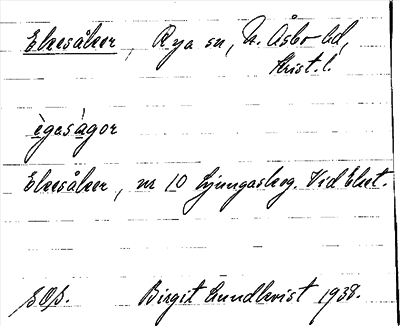 Ekesåker, Rya sn, N. Åsbo hd,
Krist. l.
ègasàgor
Ekesåker, nr 10 Ljungaskog. Vid Eket.
SOS. Birgit Lundkvist 1938.